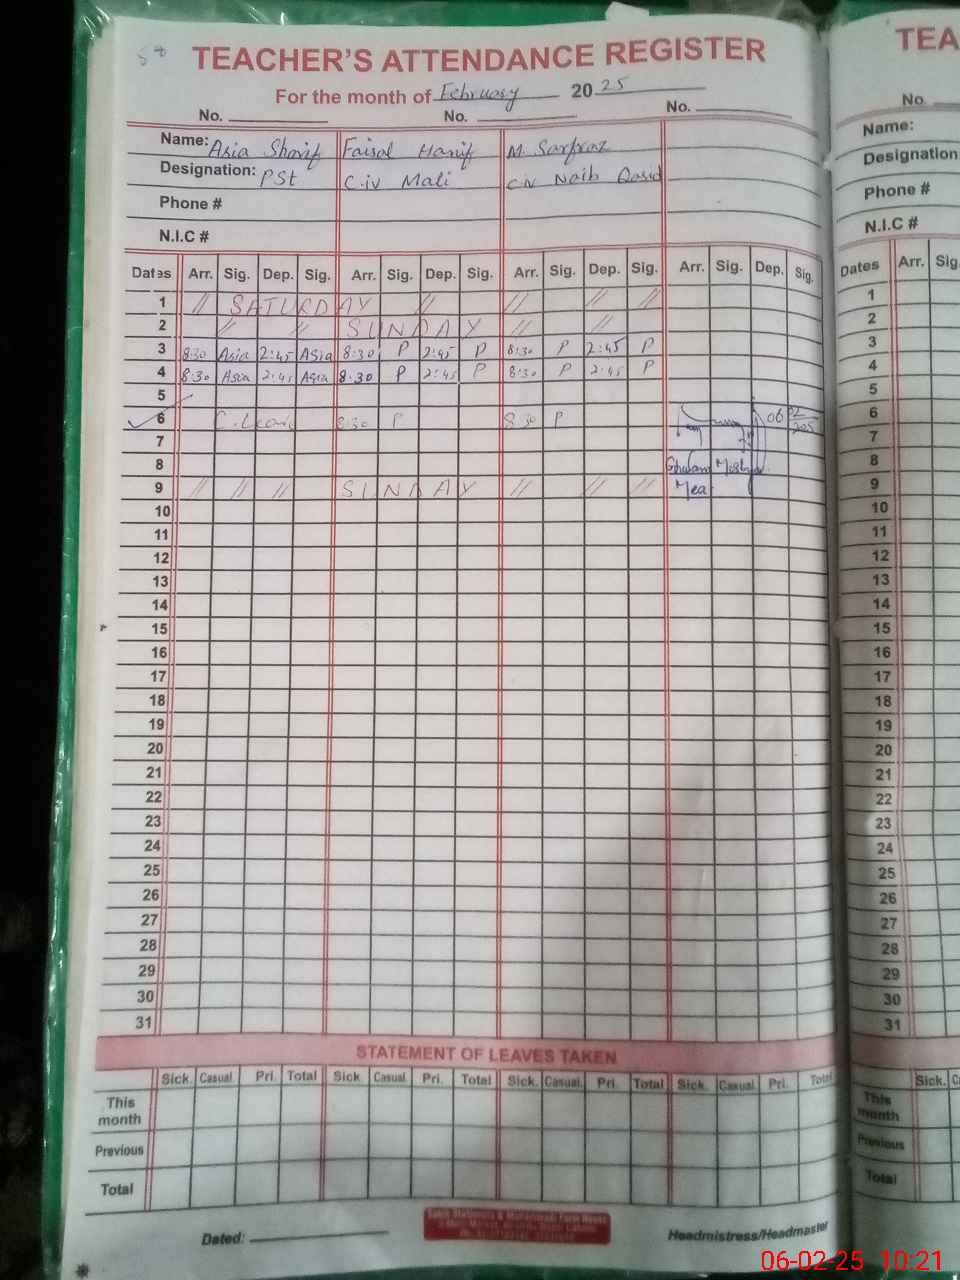 TEACHER'S ATTENDANCE REGISTER
For the month of February 2025
No. No. No.
Name: Asia Sharif Faisal Hanif M. Sarfraz
Designation: PSt C.iv Mali C.iv Naib Qasid
Phone #
N.I.C #
Dates Arr. Sig. Dep. Sig. Arr. Sig. Dep. Sig. Arr. Sig. Dep. Sig. Arr. Sig. Dep. Sig.
1 // SATURDAY // // // //
2 // // SUNDAY // //
3 8:30 Asia 2:45 Asia 8:30 P 2:45 P 8:30 P 2:45 P
4 8:30 Asia 2:45 Asia 8:30 P 2:45 P 8:30 P 2:45 P
5
6 C. Leave 8:30 P 8:30 P 06 02
7
8
9 // // // SUNDAY // // //
Mea
10
11
12
13
14
15
16
17
18
19
20
21
22
23
24
25
26
27
28
29
30
31
STATEMENT OF LEAVES TAKEN
Sick. Casual. Pri. Total Sick. Casual. Pri. Total Sick. Casual. Pri. Total Sick. Casual. Pri. Total
This month
Previous
Total
Dated: Headmistress/Headmaster
TEA
No.
Name:
Designation
Phone #
N.I.C #
Dates Arr. Sig
1
2
3
4
5
6
7
8
9
10
11
12
13
14
15
16
17
18
19
20
21
22
23
24
25
26
27
28
29
30
31
Sick. C
This month
Previous
Total
06-02-25 10:21